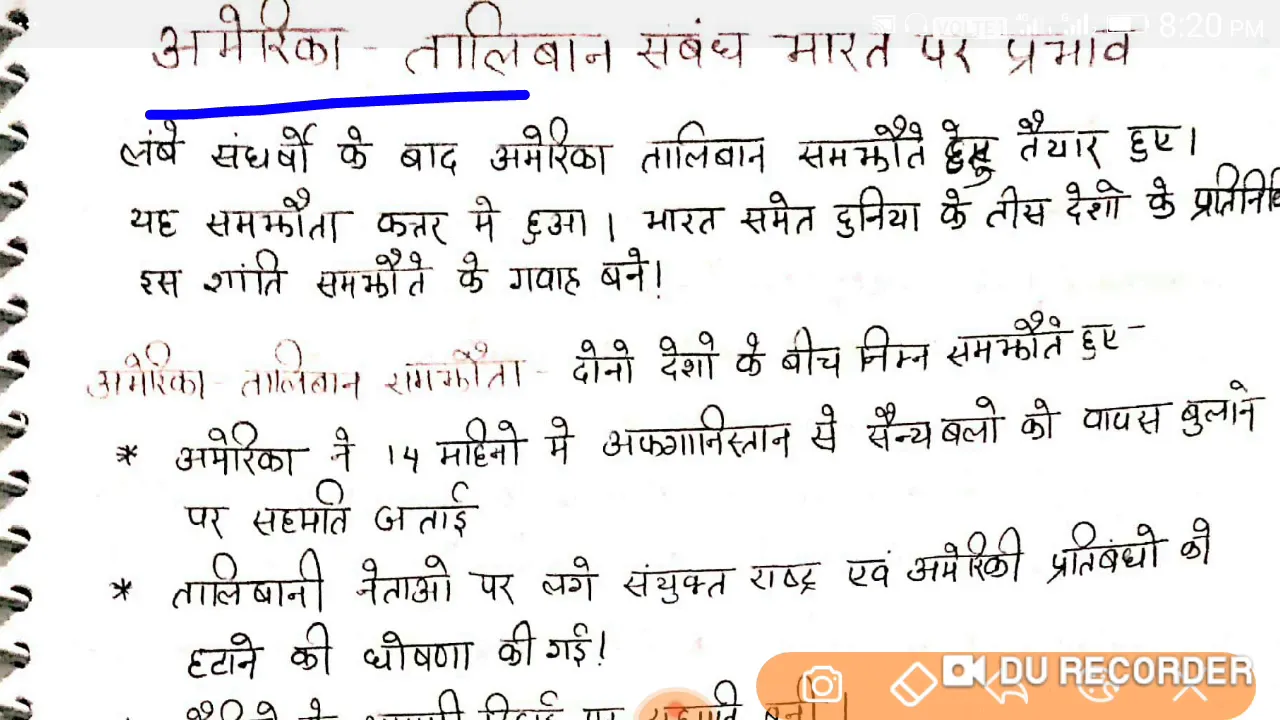 VOLTE 8:20 PM
अमेरिका - तालिबान संबंध भारत पर प्रभाव
लंबे संघर्षो के बाद अमेरिका तालिबान समझौते हेतु तैयार हुए।
यह समझौता कत्तर मे हुआ। भारत समेत दुनिया के तीस देशो के प्रतिनिधि
इस शांति समझौते के गवाह बने!
अमेरिका - तालिबान समझौता - दोनो देशो के बीच निम्न समझौते हुए -
* अमेरिका ने 14 महिनो मे अफगानिस्तान से सैन्य बलो को वापस बुलाने
पर सहमति जताई
* तालिबानी नेताओ पर लगे संयुक्त राष्ट्र एवं अमेरिकी प्रतिबंधो को
हटाने की घोषणा की गई!
पर सहमति बनी।
DU RECORDER